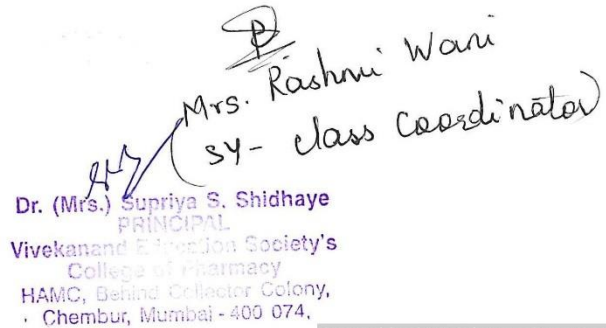 Mrs. Rashmi Wani
(SY - class Coordinator)
Dr. (Mrs.) Supriya S. Shidhaye
PRINCIPAL
Vivekanand Education Society's
College of Pharmacy
HAMC, Behind Collector Colony,
Chembur, Mumbai - 400 074.